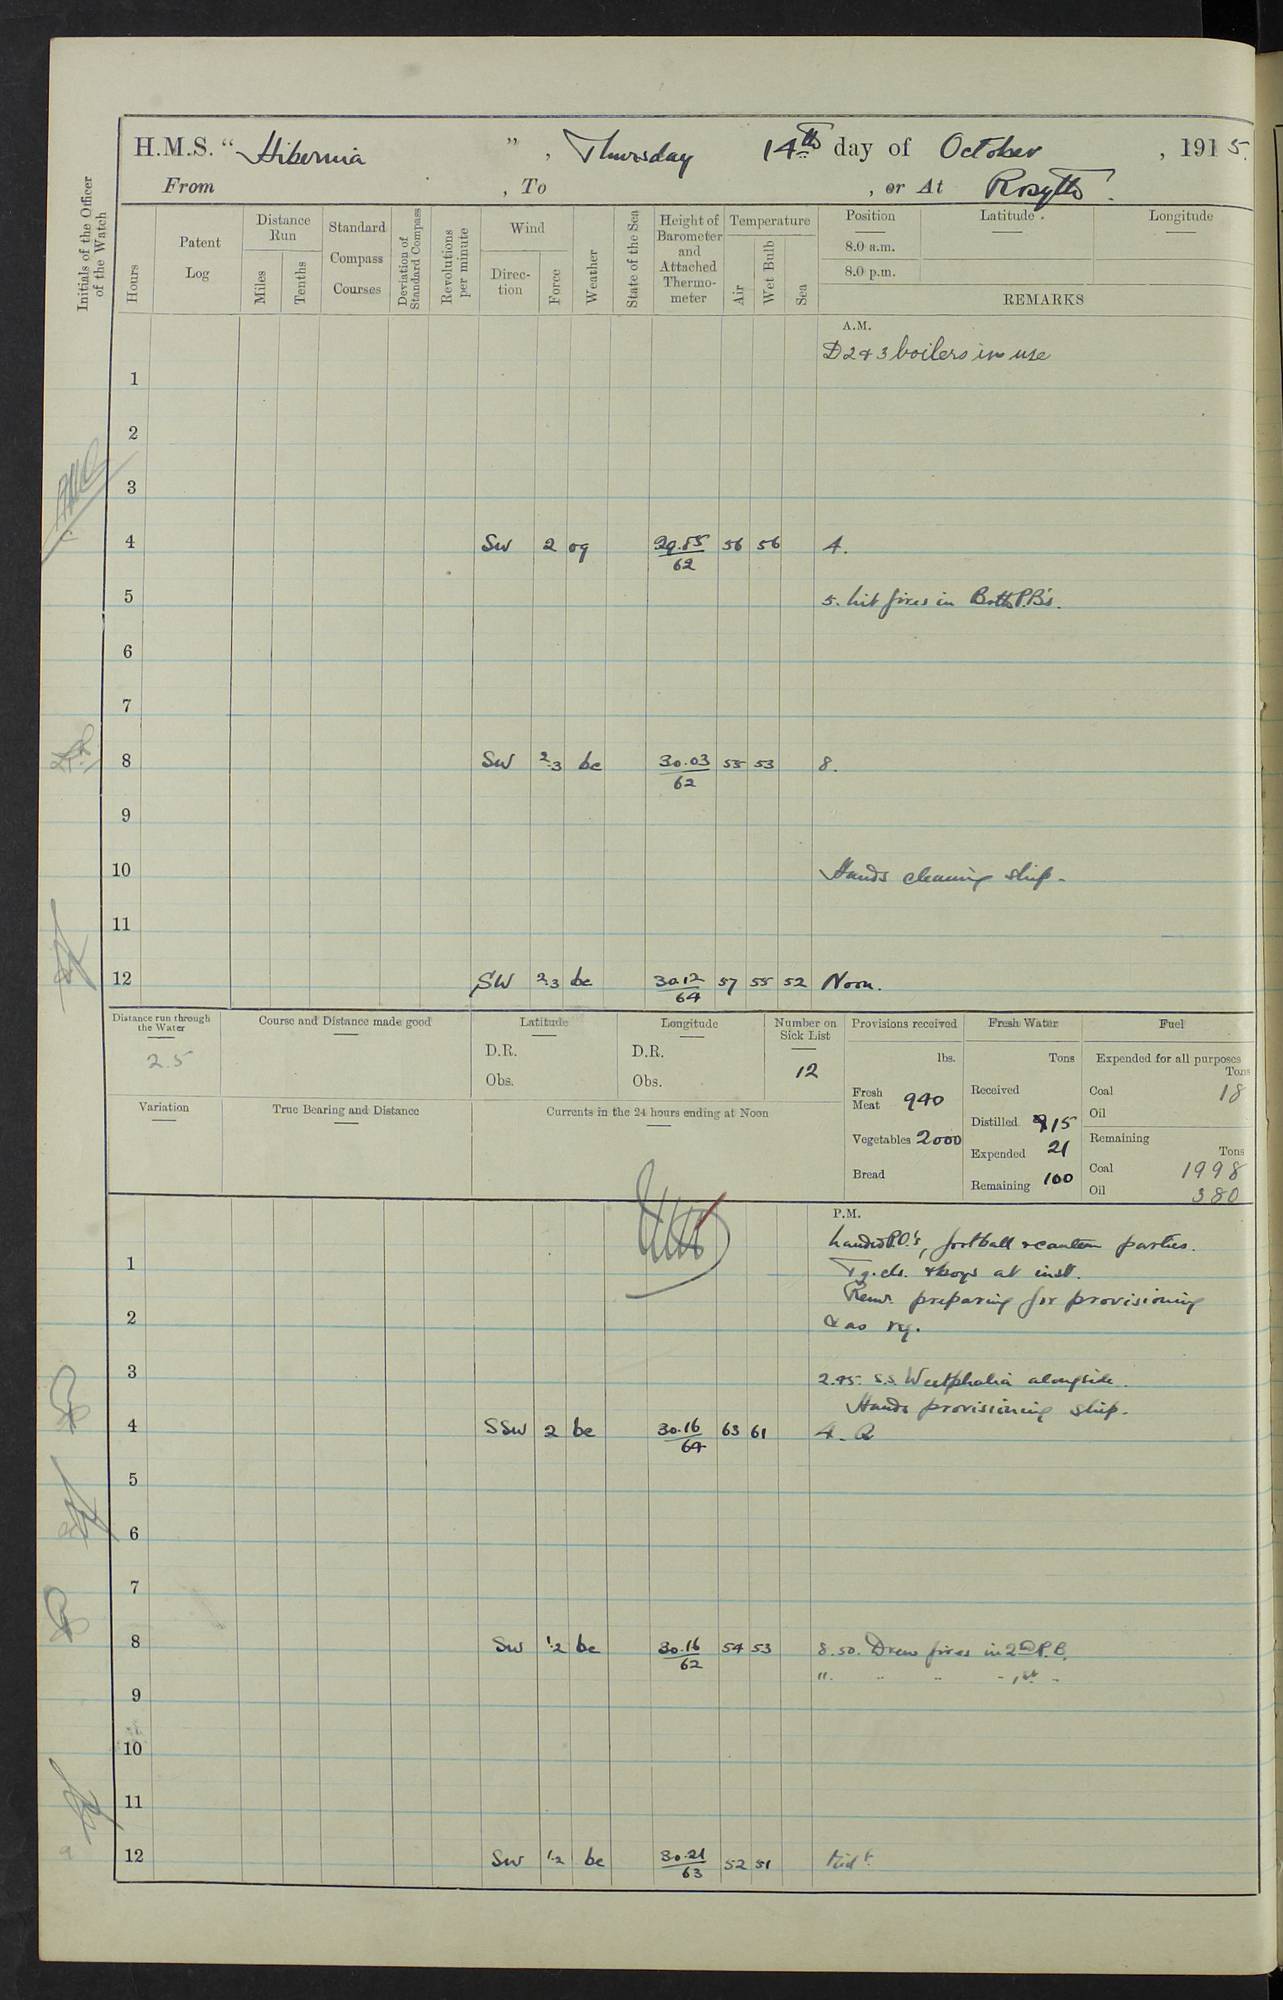 H.M.S. " Hibernia ", Thursday 14th day of October, 1915.
From , To , or At Rosyth.
Initials of the Officer of the Watch
Hours
Patent Log
Distance Run
Miles
Tenths
Standard Compass Courses
Deviation of Standard Compass
Revolutions per minute
Wind
Direc-tion
Force
Weather
State of the Sea
Height of Barometer and Attached Thermo-meter
Temperature
Air
Wet Bulb
Sea
Position Latitude Longitude
8.0 a.m.
8.0 p.m.
REMARKS
A.M.
D2 & 3 boilers in use
1
2
3
4 SW 2 og 29.85/62 56 56 4.
5 5. lit fires in Both P.B's.
6
7
8 SW 2.3 bc 30.03/62 55 53 8.
9
10 Hands cleaning ship.
11
12 SW 2.3 bc 30.12/64 57 55 52 Noon.
Distance run through the Water
2.5
Course and Distance made good
Latitude
D.R.
Obs.
Longitude
D.R.
Obs.
Number on Sick List
12
Provisions received
lbs.
Fresh Meat 940
Vegetables 2000
Bread
Fresh Water
Tons
Received
Distilled 15
Expended 21
Remaining 100
Fuel
Expended for all purposes
Tons
Coal 18
Oil
Remaining
Tons
Coal 1998
Oil 380
Variation
True Bearing and Distance
Currents in the 24 hours ending at Noon
P.M.
Landed P.O.'s, football & canteen parties.
1 Tg. cls. & boys at inst.
Remr. preparing for provisioning
2 & as rq.
3 2.45. S.S. Westphalia alongside.
Hands provisioning ship.
4 SSW 2 bc 30.16/64 63 61 4. Q
5
6
7
8 SW 1.2 bc 30.16/62 54 53 8.50. Drew fires in 2nd P.B.
" " " " 1st "
9
10
11
12 SW 1.2 bc 30.21/63 52 51 Midt.